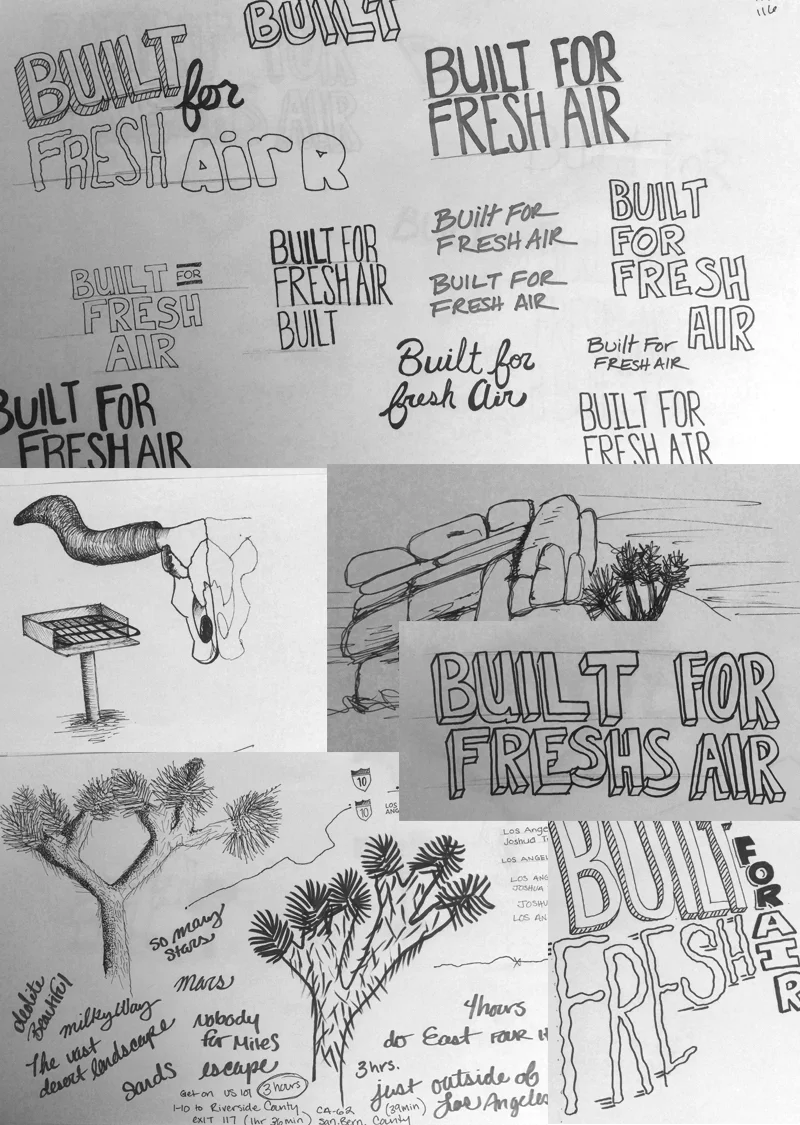 116
BUILT
BUILT
for
FRESH Air R
BUILT FOR
FRESH AIR
BUILT FOR
FRESH
AIR
BUILT FOR
FRESH AIR
BUILT
Built FOR
FRESH AIR
BUILT FOR
FRESH AIR
BUILT
FOR
FRESH
AIR
Built for
fresh Air
Built For
FRESH AIR
BUILT FOR
FRESH AIR
BUILT FOR
FRESH AIR
BUILT FOR
FRESHS AIR
10
10
LOS
ANG
LOS Ange
Joshua T
LOS ANGEL
LOS AN
JOSHUA
JOSHU
LOS AN
BUILT
FOR
AIR
FRESH
so many
stars
mars
Beautiful
milky way
The vast
desert landscape
Nobody
for Miles
escape
Get on US 101 3 hours
1-10 to Riverside County
EXIT 117 (1hr 36min)
CA-62 (39min)
San. Bern. County
4 hours
do East FOUR H
3 hrs.
just outside of
Los Angeles